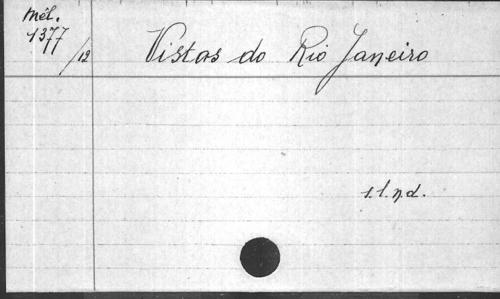 Mél.
1377
/12
Vistas do Rio Janeiro
s.l.n.d.